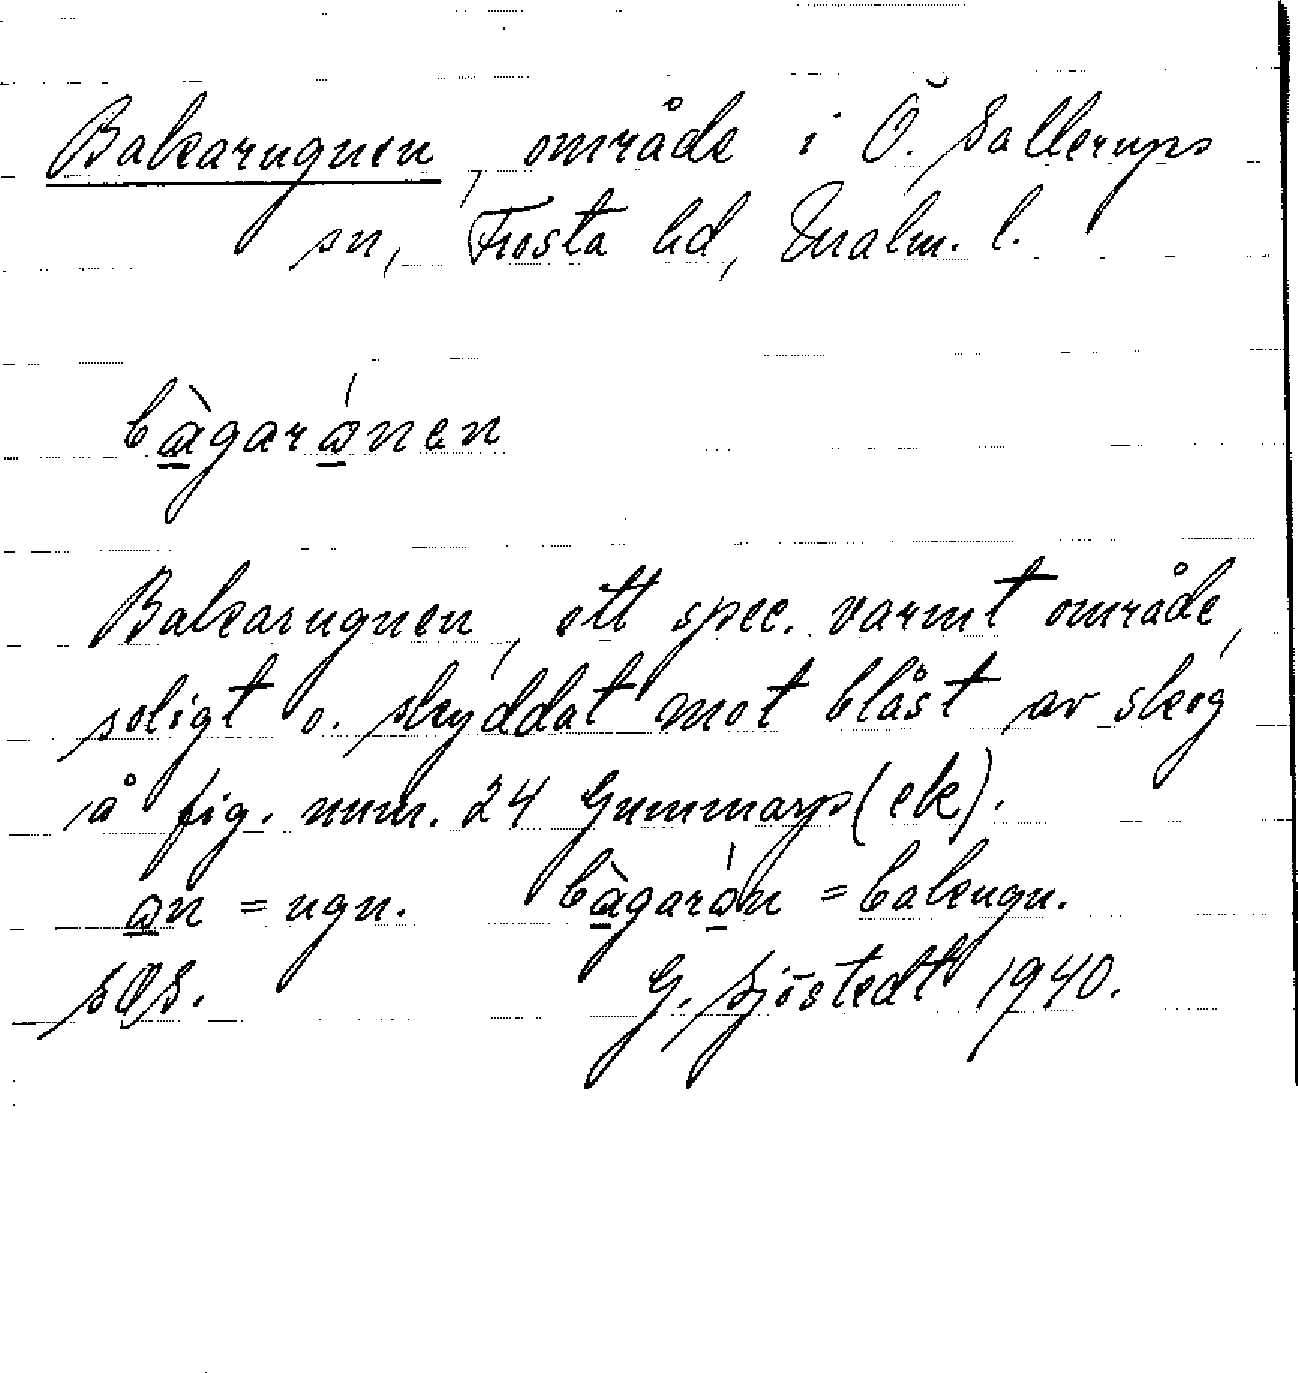 Bakarugnen, område i Ö. Sallerups
sn, Frosta hd, Malm. l.
bàgarånen
Bakarugnen, ett spec. varmt område,
soligt o. skyddat mot blåst av skog
å fig. num. 24 Gummarps (ek).
ån = ugn. bàgarån = bakugn.
G. Sjöstedt 1940.